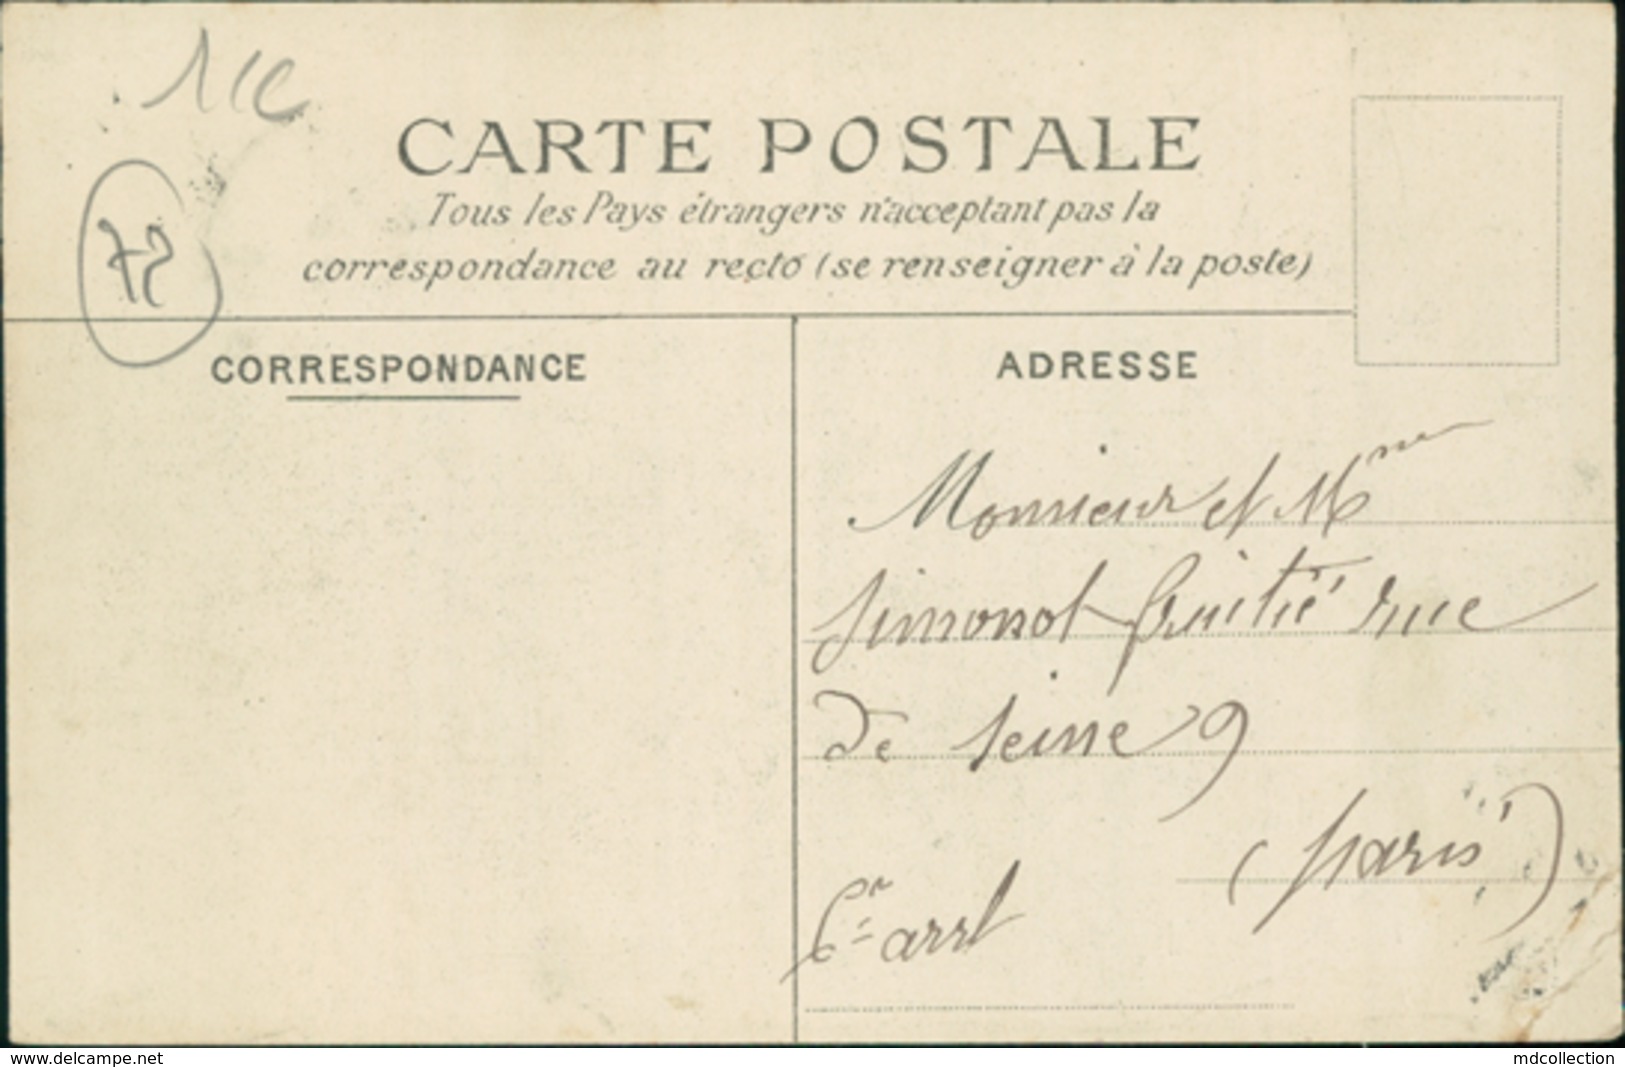 CARTE POSTALE
Tous les Pays étrangers n'acceptant pas la
correspondance au recto (se renseigner à la poste)
CORRESPONDANCE
ADRESSE
Monsieur et Mme
Simonot fruitié rue
De Seine 9
(Paris)
6e arrt
www.delcampe.net
mdcollection